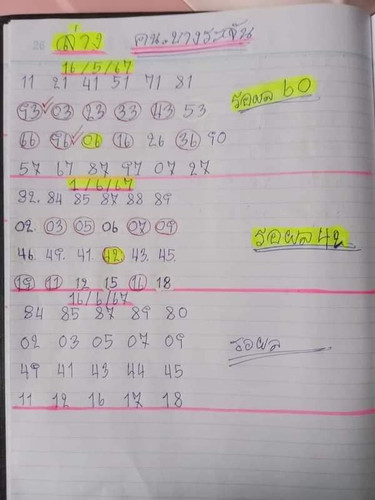 ล่าง คนบางระจัน
16/5/67
11 21 41 51 71 81
93 03 23 33 43 53
รอผล 60
66 96 06 16 26 36 90
57 67 87 97 07 27
1/6/67
82. 84 85 87 88 89
02. 03 05 06 07 09
รอผล 42
46. 49. 41. 42 43. 45.
19 11 12 15 16 18
16/6/67
84 85 87 89 80
02 03 05 07 09
รอผล
49 41 43 44 45
11 12 16 17 18